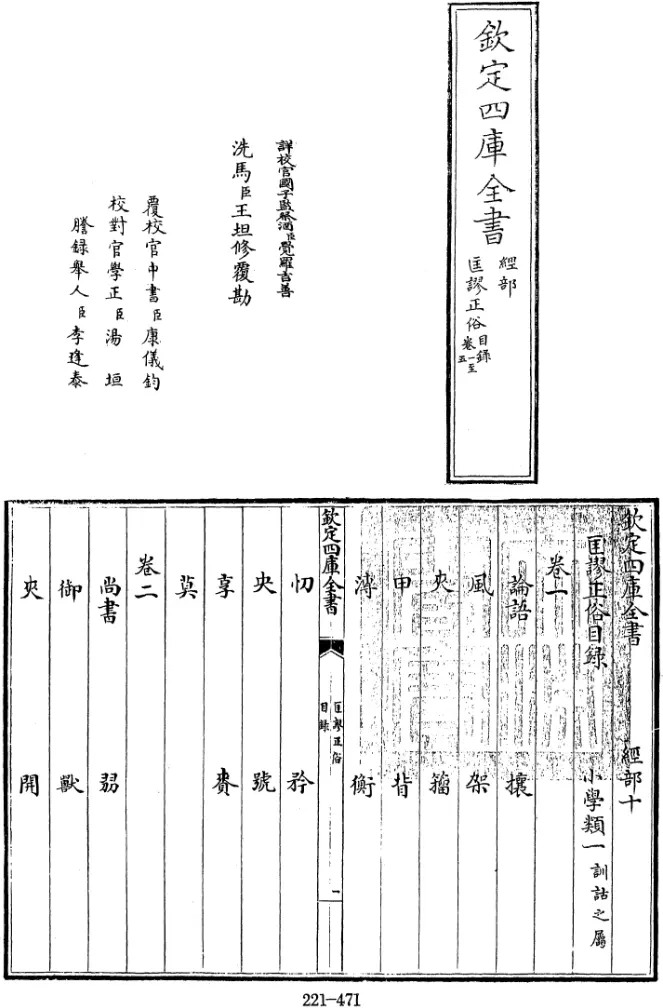 欽定四庫全書
經部
匡謬正俗
目錄
卷一至
五
詳校官國子監祭酒臣覺羅吉善
洗馬臣王坦修覆勘
覆校官中書臣康儀鈞
校對官學正臣湯垣
謄錄舉人臣李逢泰
欽定四庫全書 經部十
匡謬正俗目錄 小學類一訓詁之屬
卷一
論語 攘
風 架
籀
申
漙 衡
欽定四庫全書
匡謬正俗
目錄
一
忉 矜
央 號
享 賚
莫
卷二
尚書 弱
御 獸
開
221-471